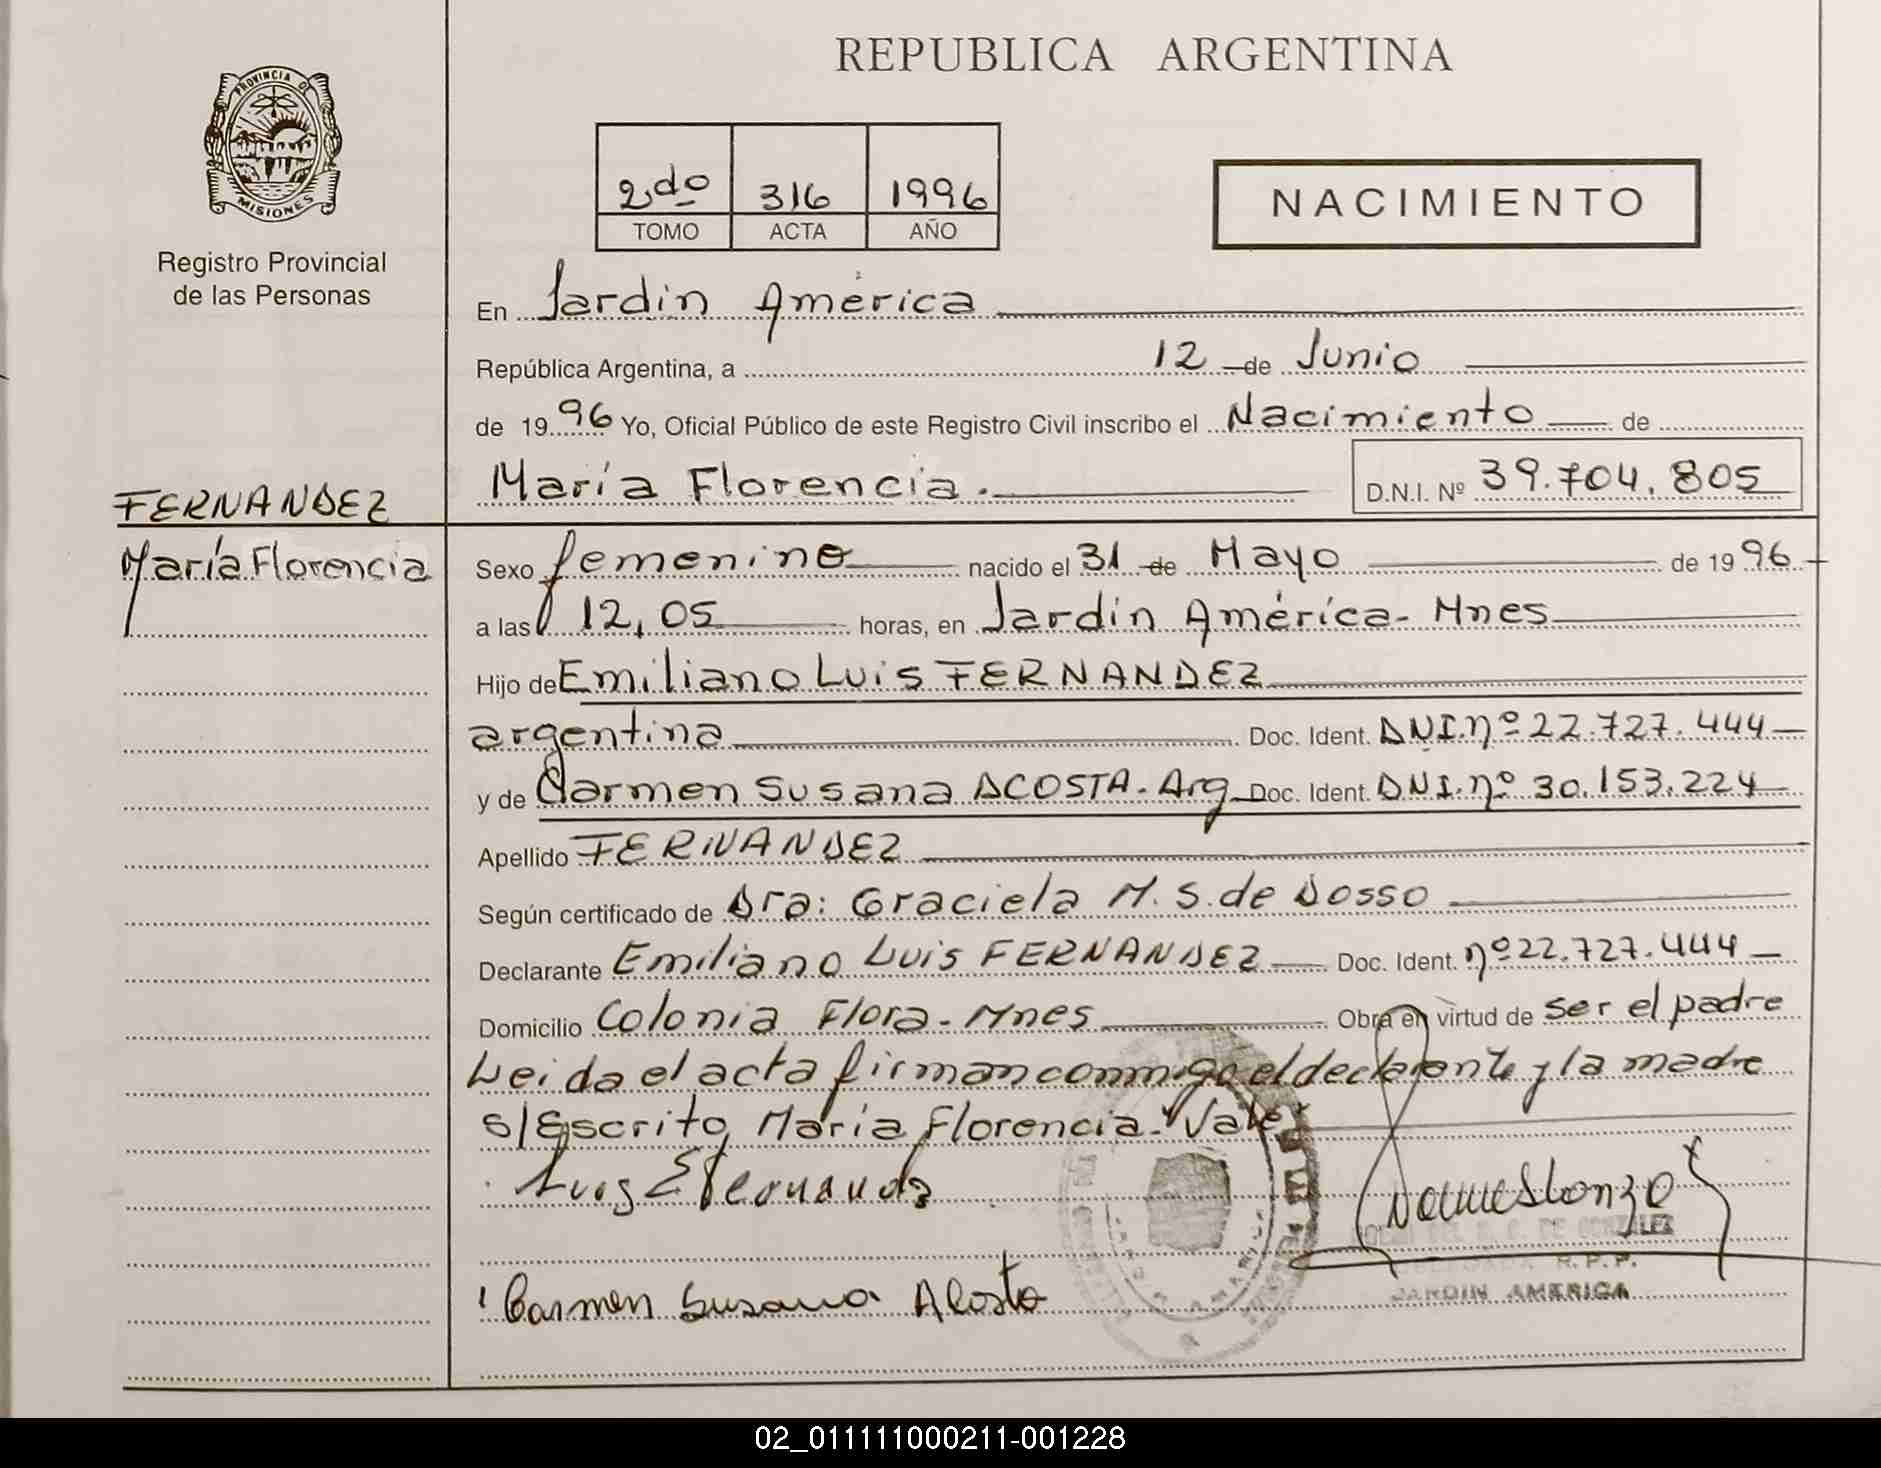 REPUBLICA ARGENTINA
PROVINCIA DE
MISIONES
Registro Provincial
de las Personas
2do 316 1996
TOMO ACTA AÑO
NACIMIENTO
En Jardín América
República Argentina, a 12 de Junio
de 1996 Yo, Oficial Público de este Registro Civil inscribo el Nacimiento de
María Florencia. D.N.I. Nº 39.704.805
FERNANDEZ
María Florencia
Sexo femenino nacido el 31 de Mayo de 1996
a las 12,05 horas, en Jardín América- Mnes
Hijo de Emiliano Luis FERNANDEZ
argentina Doc. Ident. DNI.nº 22.727.444
y de Carmen Susana ACOSTA. Arg Doc. Ident. DNI.nº 30.153.224
Apellido FERNANDEZ
Según certificado de Dra: Graciela M. S. de Dosso
Declarante Emiliano Luis FERNANDEZ Doc. Ident. nº 22.727.444
Domicilio Colonia Flora - Mnes Obra en virtud de ser el padre
Leida el acta firman conmigo el declarante y la madre
s/Escrito María Florencia-"Vale"
Luis E Fernandz
R.P.P.
JARDIN AMERICA
Carmen Susana Acosta
02_011111000211-001228